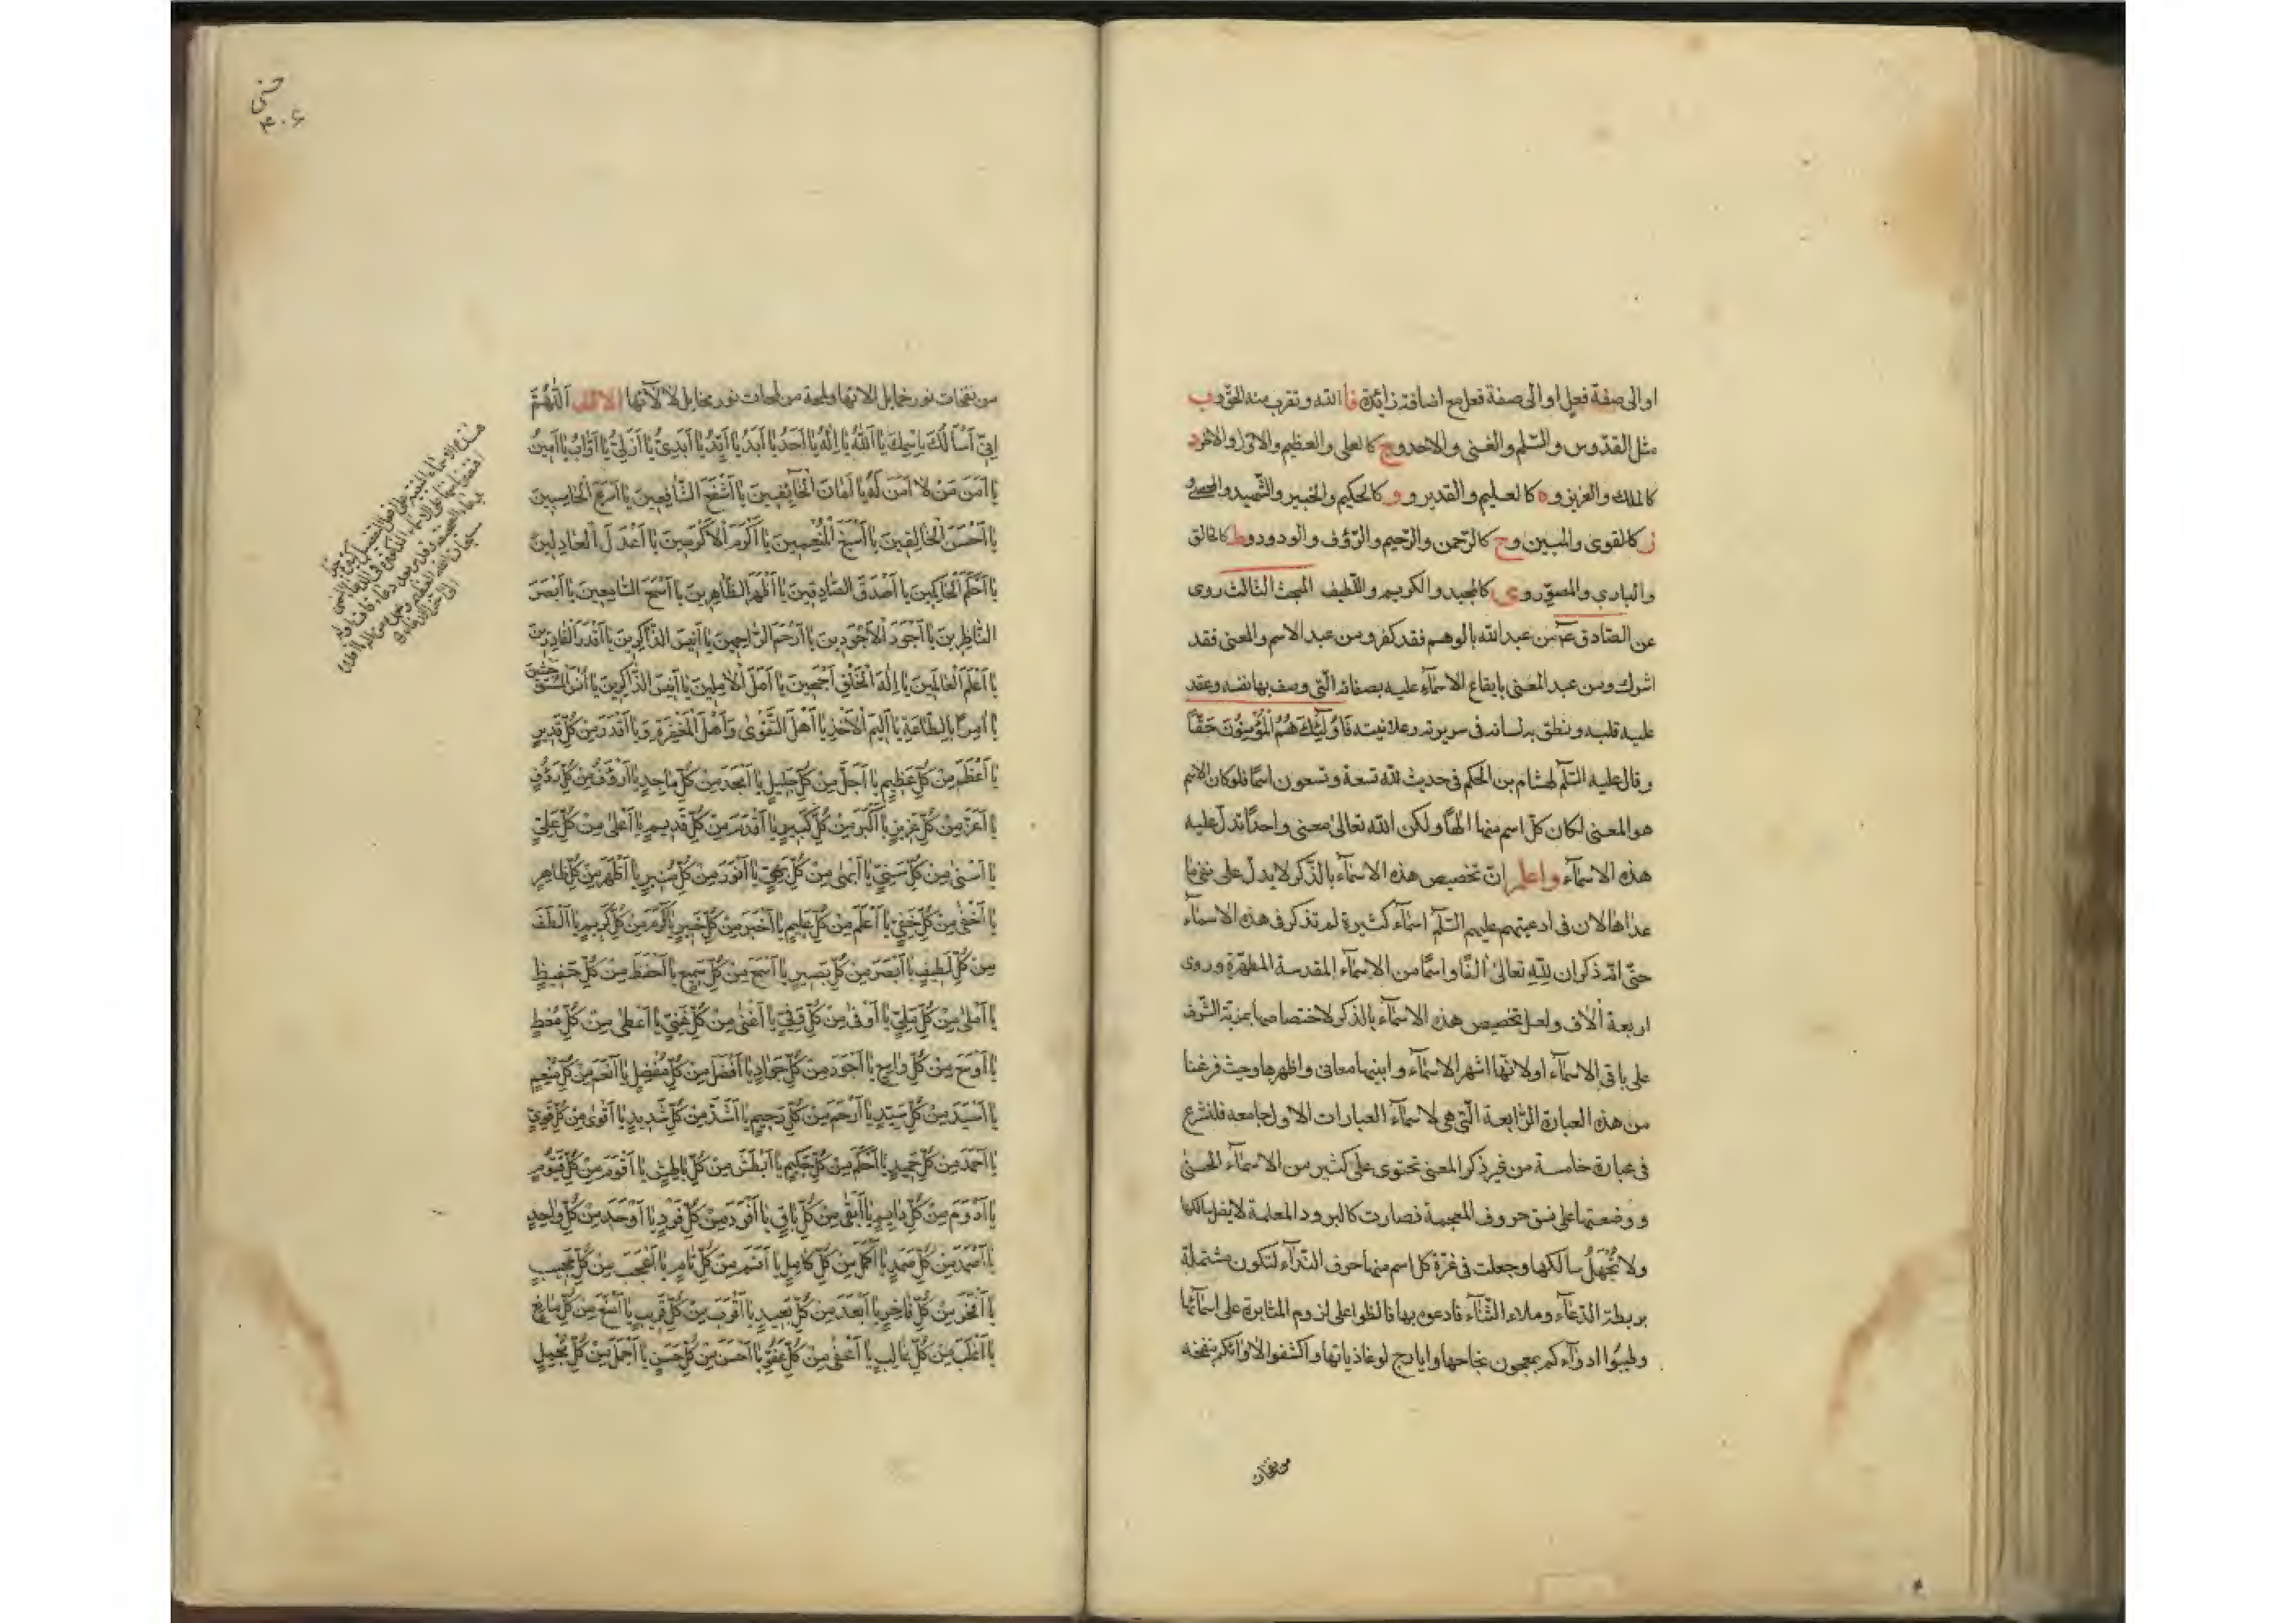 او الى صفة فعل او الى صفة فعل مع اضافة زائدة فا الله و تقرب منه الحق و ب
مثل القدّوس و السّلم و الغنى و الاحد و ج كالعلى و العظيم و الاوّل و الاخر و د
كالملك و العزيز و ه كالعليم و القدير و و كالحكيم و الخبير و الشّهيد و المحصى و
ز كالقوى و المبين و ح كالرّحمن و الرّحيم و الرّؤف و الودود و ط كالخالق
و البارى و المصوّر و ى كالمجيد و الكريم و اللّطيف المبحث الثالث روى
عن الصّادق ع من عبد الله بالوهم فقد كفر و من عبد الاسم و المعنى فقد
اشرك و من عبد المعنى بايقاع الاسمآء عليه بصفاته الّتى وصف بها نفسه و عقد
عليه قلبه و نطق به لسانه فى سريرته و علانيته فَاُولٰئِكَ هُمُ الْمُؤْمِنُونَ حَقًّا
و قال عليه السّلم لهشام بن الحكم فى حديث لله تسعة و تسعون اسمًا فلو كان الاسم
هو المعنى لكان كلّ اسم منها الهًا و لكن الله تعالى معنى واحدًا تدلّ عليه
هذه الاسمآء و اعلم انّ تخصيص هذه الاسمآء بالذّكر لا يدلّ على نفى ما
عداها لان فى ادعيتهم عليهم السّلم اسمآء كثيرة لم تذكر فى هذه الاسمآء
حتّى انّه ذكر ان للّٰه تعالى الفًا و اسمًا من الاسمآء المقدسة المطهّرة و روى
اربعة آلاف و لعل تخصيص هذه الاسمآء بالذكر لاختصاصها بمزية الشّرف
على باقى الاسمآء او لانّها اشهر الاسمآء و ابينها معانى و اظهرها و حيث فرغنا
من هذه العبارة الرّابعة الّتى هى لاسمآء العبارات الاول جامعه فلنشرع
فى عبارة خامسة من غير ذكر المعنى تحتوى على كثير من الاسمآء الحسنى
و وضعتها على نسق حروف المعجمة فصارت كالبرود المعلمة لا يضل سالكها
و لا يُجْهَلُ سالكها و جعلت فى غرّة كل اسم منها حرف النّدآء لتكون مشتملة
بربطة الدّعآء و ملاء الثّنآء فادعوه بها فالظوا على لزوم المثابرة على اسمآئها
و طيبّوا ادوآءكم بمعجون نجاحها و ايارج لوغاذياتها و اكشفوا لاوآئكم بنفخه
من نفحات
من نفحات نور خمايل الائها و لمحة من لمحات نور مخايل لألآئها الاولف اَللّٰهُمَّ
اِنّى اَسْاَلُكَ بِاسْمِكَ يا اَللّٰهُ يا اِلٰهُ يا اَحَدُ يا اَبَدُ يا اَيِّدُ يا اَبَدِىُّ يا اَزَلِىُّ يا اَوّابُ يا اَمينُ
يا اَمْنَ مَنْ لا اَمْنَ لَهُ يا اَمانَ الْخآئِفينَ يا اَشْفَعَ الشّافِعينَ يا اَسْرَعَ الْحاسِبينَ
يا اَحْسَنَ الْخالِقينَ يا اَسْبَغَ الْمُنْعِمينَ يا اَكْرَمَ الْاَكْرَمينَ يا اَعْدَلَ الْعادِلينَ
يا اَحْكَمَ الْحاكِمينَ يا اَصْدَقَ الصّادِقينَ يا اَطْهَرَ الطّاهِرينَ يا اَسْمَعَ السّامِعينَ يا اَبْصَرَ
النّاظِرينَ يا اَجْوَدَ الْاَجْوَدينَ يا اَرْحَمَ الرّاحِمينَ يا اَنيسَ الذّاكِرينَ يا اَقْدَرَ الْقادِرينَ
يا اَعْلَمَ الْعالِمينَ يا اِلٰهَ الْخَلْقِ اَجْمَعينَ يا اَمَلَ الْاٰمِلينَ يا اَنيسَ الذّاكِرينَ يا اُنْسَ الْمُسْتَوْحِشينَ
يا اٰمِرًا بِالطّاعَةِ يا اَليمَ الْاَخْذِ يا اَهْلَ التَّقْوٰى وَ اَهْلَ الْمَغْفِرَةِ وَ يا اَقْدَرَ مِنْ كُلِّ قَديرٍ
يا اَعْظَمَ مِنْ كُلِّ عَظيمٍ يا اَجَلَّ مِنْ كُلِّ جَليلٍ يا اَمْجَدَ مِنْ كُلِّ ماجِدٍ يا اَرْؤَفَ مِنْ كُلِّ رَؤُفٍ
يا اَعَزَّ مِنْ كُلِّ عَزيزٍ يا اَكْبَرَ مِنْ كُلِّ كَبيرٍ يا اَقْدَمَ مِنْ كُلِّ قَديمٍ يا اَعْلٰى مِنْ كُلِّ عَلِىٍّ
يا اَسْنٰى مِنْ كُلِّ سَنِىٍّ يا اَبْهٰى مِنْ كُلِّ بَهِىٍّ يا اَنْوَرَ مِنْ كُلِّ مُنيرٍ يا اَظْهَرَ مِنْ كُلِّ ظاهِرٍ
يا اَخْفٰى مِنْ كُلِّ خَفِىٍّ يا اَعْلَمَ مِنْ كُلِّ عَليمٍ يا اَخْبَرَ مِنْ كُلِّ خَبيرٍ يا اَكْرَمَ مِنْ كُلِّ كَريمٍ يا اَلْطَفَ
مِنْ كُلِّ لَطيفٍ يا اَبْصَرَ مِنْ كُلِّ بَصيرٍ يا اَسْمَعَ مِنْ كُلِّ سَميعٍ يا اَحْفَظَ مِنْ كُلِّ حَفيظٍ
يا اَمْلٰى مِنْ كُلِّ مَلِىٍّ يا اَوْفٰى مِنْ كُلِّ وَفِىٍّ يا اَغْنٰى مِنْ كُلِّ غَنِىٍّ يا اَعْطٰى مِنْ كُلِّ مُعْطٍ
يا اَوْسَعَ مِنْ كُلِّ واسِعٍ يا اَجْوَدَ مِنْ كُلِّ جَوادٍ يا اَفْضَلَ مِنْ كُلِّ مُفْضِلٍ يا اَنْعَمَ مِنْ كُلِّ مُنْعِمٍ
يا اَسْيَدَ مِنْ كُلِّ سَيِّدٍ يا اَرْحَمَ مِنْ كُلِّ رَحيمٍ يا اَشَدَّ مِنْ كُلِّ شَديدٍ يا اَقْوٰى مِنْ كُلِّ قَوِىٍّ
يا اَحْمَدَ مِنْ كُلِّ حَميدٍ يا اَحْكَمَ مِنْ كُلِّ حَكيمٍ يا اَبْطَشَ مِنْ كُلِّ باطِشٍ يا اَقْوَمَ مِنْ كُلِّ قَيُّومٍ
يا اَدْوَمَ مِنْ كُلِّ دائِمٍ يا اَبْقٰى مِنْ كُلِّ باقٍ يا اَفْرَدَ مِنْ كُلِّ فَرْدٍ يا اَوْحَدَ مِنْ كُلِّ واحِدٍ
يا اَصْمَدَ مِنْ كُلِّ صَمَدٍ يا اَكْمَلَ مِنْ كُلِّ كامِلٍ يا اَتَمَّ مِنْ كُلِّ تامٍّ يا اَعْجَبَ مِنْ كُلِّ عَجيبٍ
يا اَفْخَرَ مِنْ كُلِّ فاخِرٍ يا اَبْعَدَ مِنْ كُلِّ بَعيدٍ يا اَقْرَبَ مِنْ كُلِّ قَريبٍ يا اَمْنَعَ مِنْ كُلِّ مانِعٍ
يا اَغْلَبَ مِنْ كُلِّ غالِبٍ يا اَعْفٰى مِنْ كُلِّ عَفُوٍّ يا اَحْسَنَ مِنْ كُلِّ حَسَنٍ يا اَجْمَلَ مِنْ كُلِّ جَميلٍ
هذه الاسمآء المبنية على افعل التفضيل